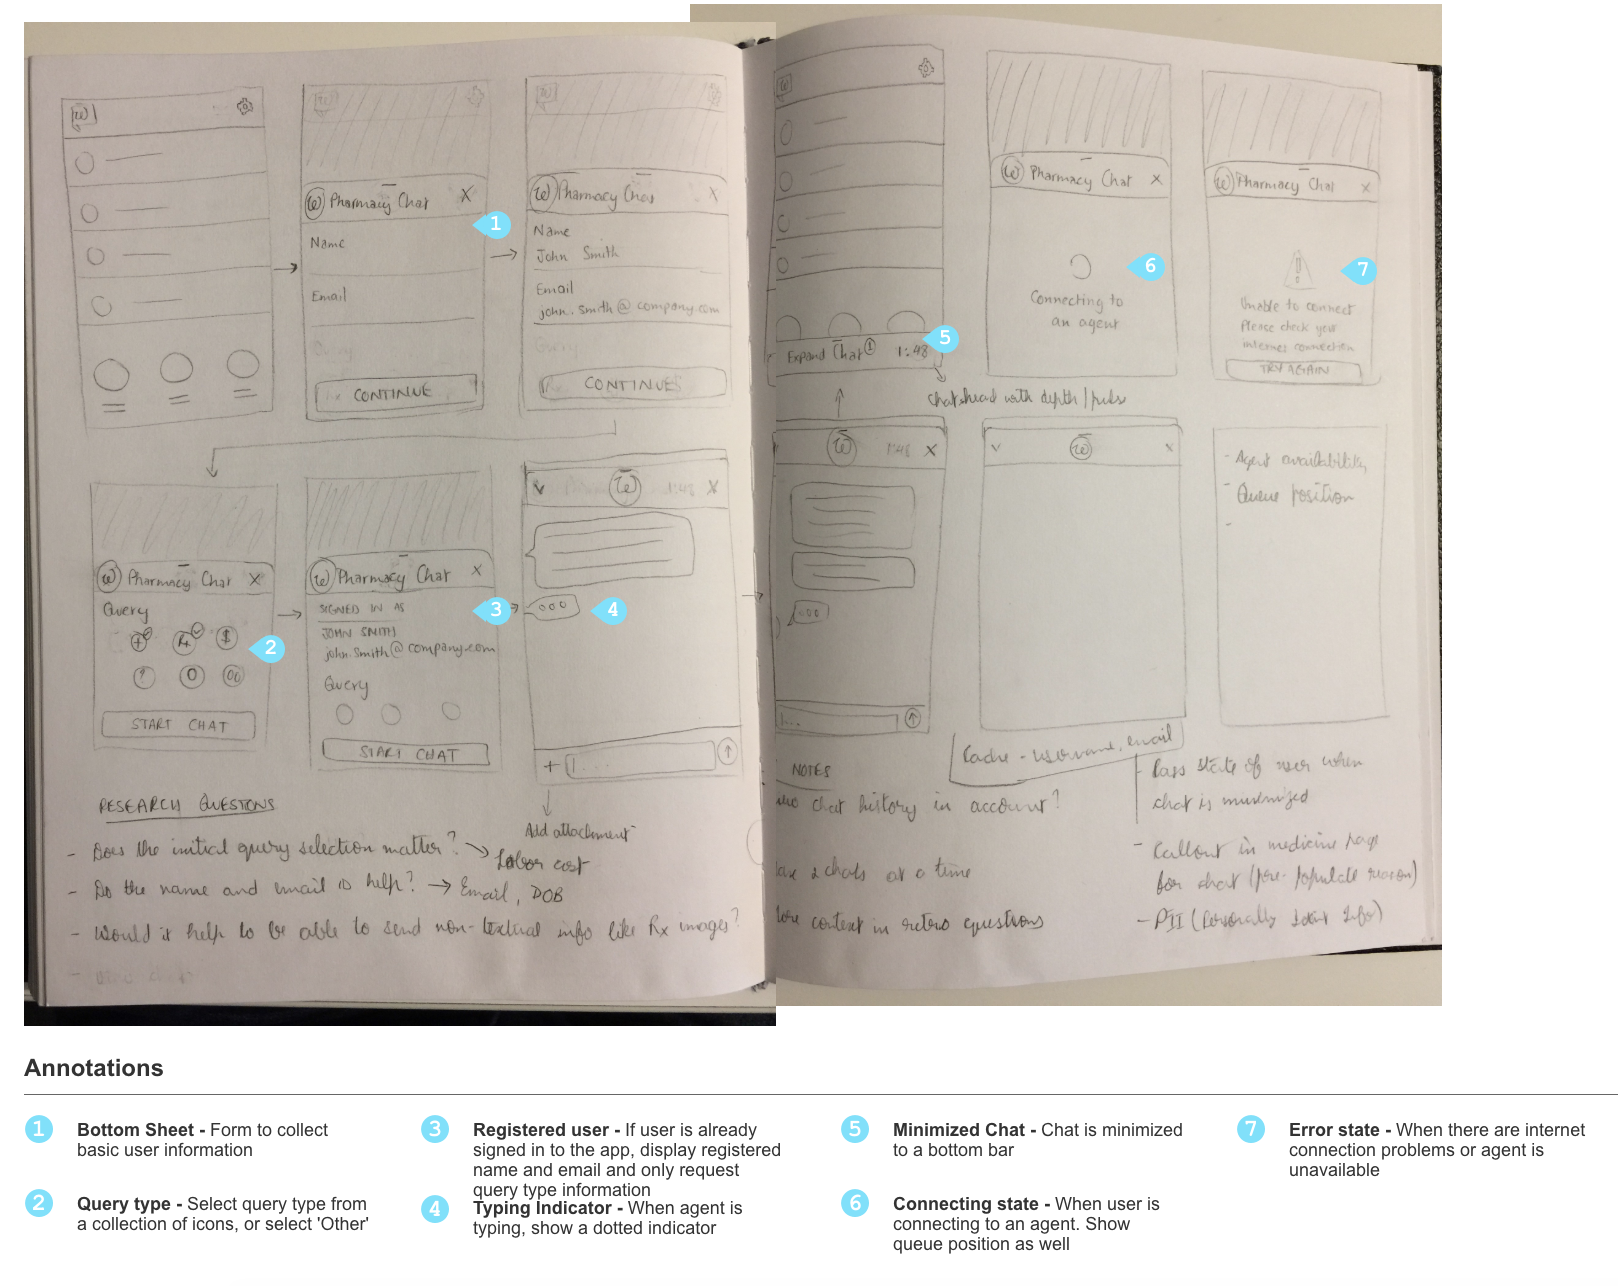 Pharmacy Chat X
Name
Email
CONTINUE
Pharmacy Chat X
Name
John Smith
Email
john.smith@company.com
CONTINUE
1
Pharmacy Chat X
Query
START CHAT
2
Pharmacy Chat X
SIGNED IN AS
JOHN SMITH
john.smith@company.com
Query
START CHAT
3
1:48 X
4
Add attachment
RESEARCH QUESTIONS
- Does the initial query selection matter? → Labor cost
- Do the name and email ID help? → Email, DOB
- Would it help to be able to send non-textual info like Rx images?
Expand Chat 1 1:48
5
Chat head with depth/pulse
Pharmacy Chat X
Connecting to
an agent
6
Pharmacy Chat X
Unable to connect
Please check your
internet connection
TRY AGAIN
7
1:48 X
- Agent availability
- Queue position
Cache - username, email
NOTES
chat history in account?
2 chats at a time
context in questions
- Pass state of user when
chat is minimized
- Callout in medicine page
for chat (pre-populate reason)
- PII (Personally Ident Info)
Annotations
1 Bottom Sheet - Form to collect
basic user information
2 Query type - Select query type from
a collection of icons, or select 'Other'
3 Registered user - If user is already
signed in to the app, display registered
name and email and only request
query type information
4 Typing Indicator - When agent is
typing, show a dotted indicator
5 Minimized Chat - Chat is minimized
to a bottom bar
6 Connecting state - When user is
connecting to an agent. Show
queue position as well
7 Error state - When there are internet
connection problems or agent is
unavailable